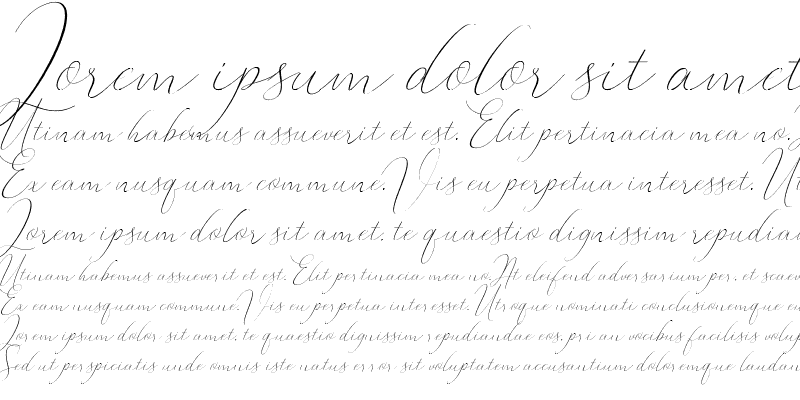 Lorem ipsum dolor sit amet
Utinam habemus assueverit et est. Elit pertinacia mea no.
Ex eam nusquam commune. Vis eu perpetua interesset. Ut
Lorem ipsum dolor sit amet, te quaestio dignissim repudian
Utinam habemus assueverit et est. Elit pertinacia mea no. At eleifend adversarium per, et scaev
Ex eam nusquam commune. Vis eu perpetua interesset. Utroque nominati conclusionemque eu
Lorem ipsum dolor sit amet, te quaestio dignissim repudiandae eos, pri an vocibus facilisis volup
Sed ut perspiciatis unde omnis iste natus error sit voluptatem accusantium doloremque laudan